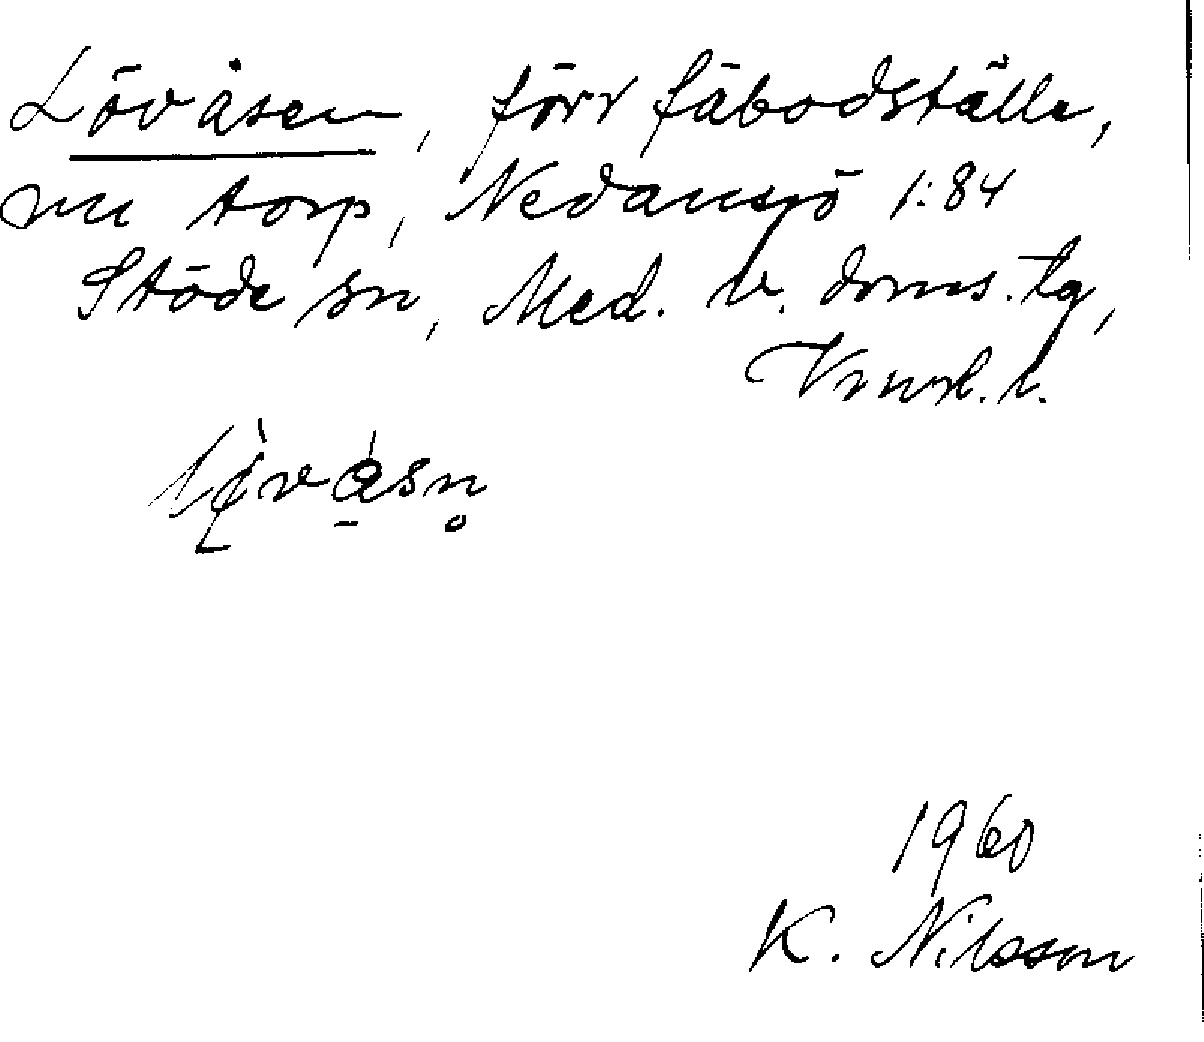 Lövåsen, förr fäbodställe,
nu torp, Nedansjö 1:84
Stöde sn, Med. v. doms. tg,
Vnorl. l.
1960
K. Nilsson